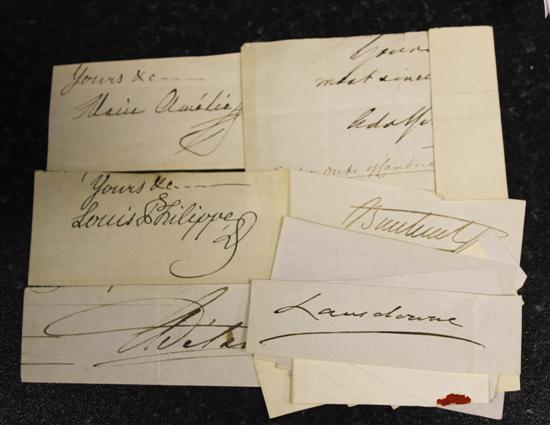 Yours &c
Marie Amélie
Yours
most since
Adolph
Duke of Cambrid
Yours &c
Louis Philippe
Lansdowne